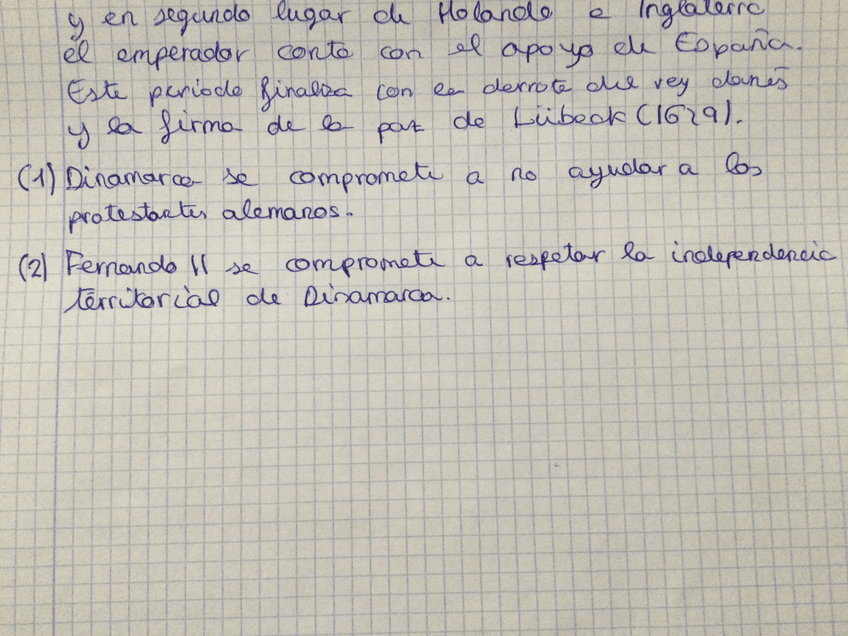 y en segundo lugar de Holanda e Inglaterra
el emperador conto con el apoyo de España.
Este periodo finaliza con la derrota del rey danés
y la firma de la paz de Lübeck (1629).
(1) Dinamarca se compromete a no ayudar a los
protestantes alemanos.
(2) Fernando II se compromete a respetar la independencia
territorial de Dinamarca.